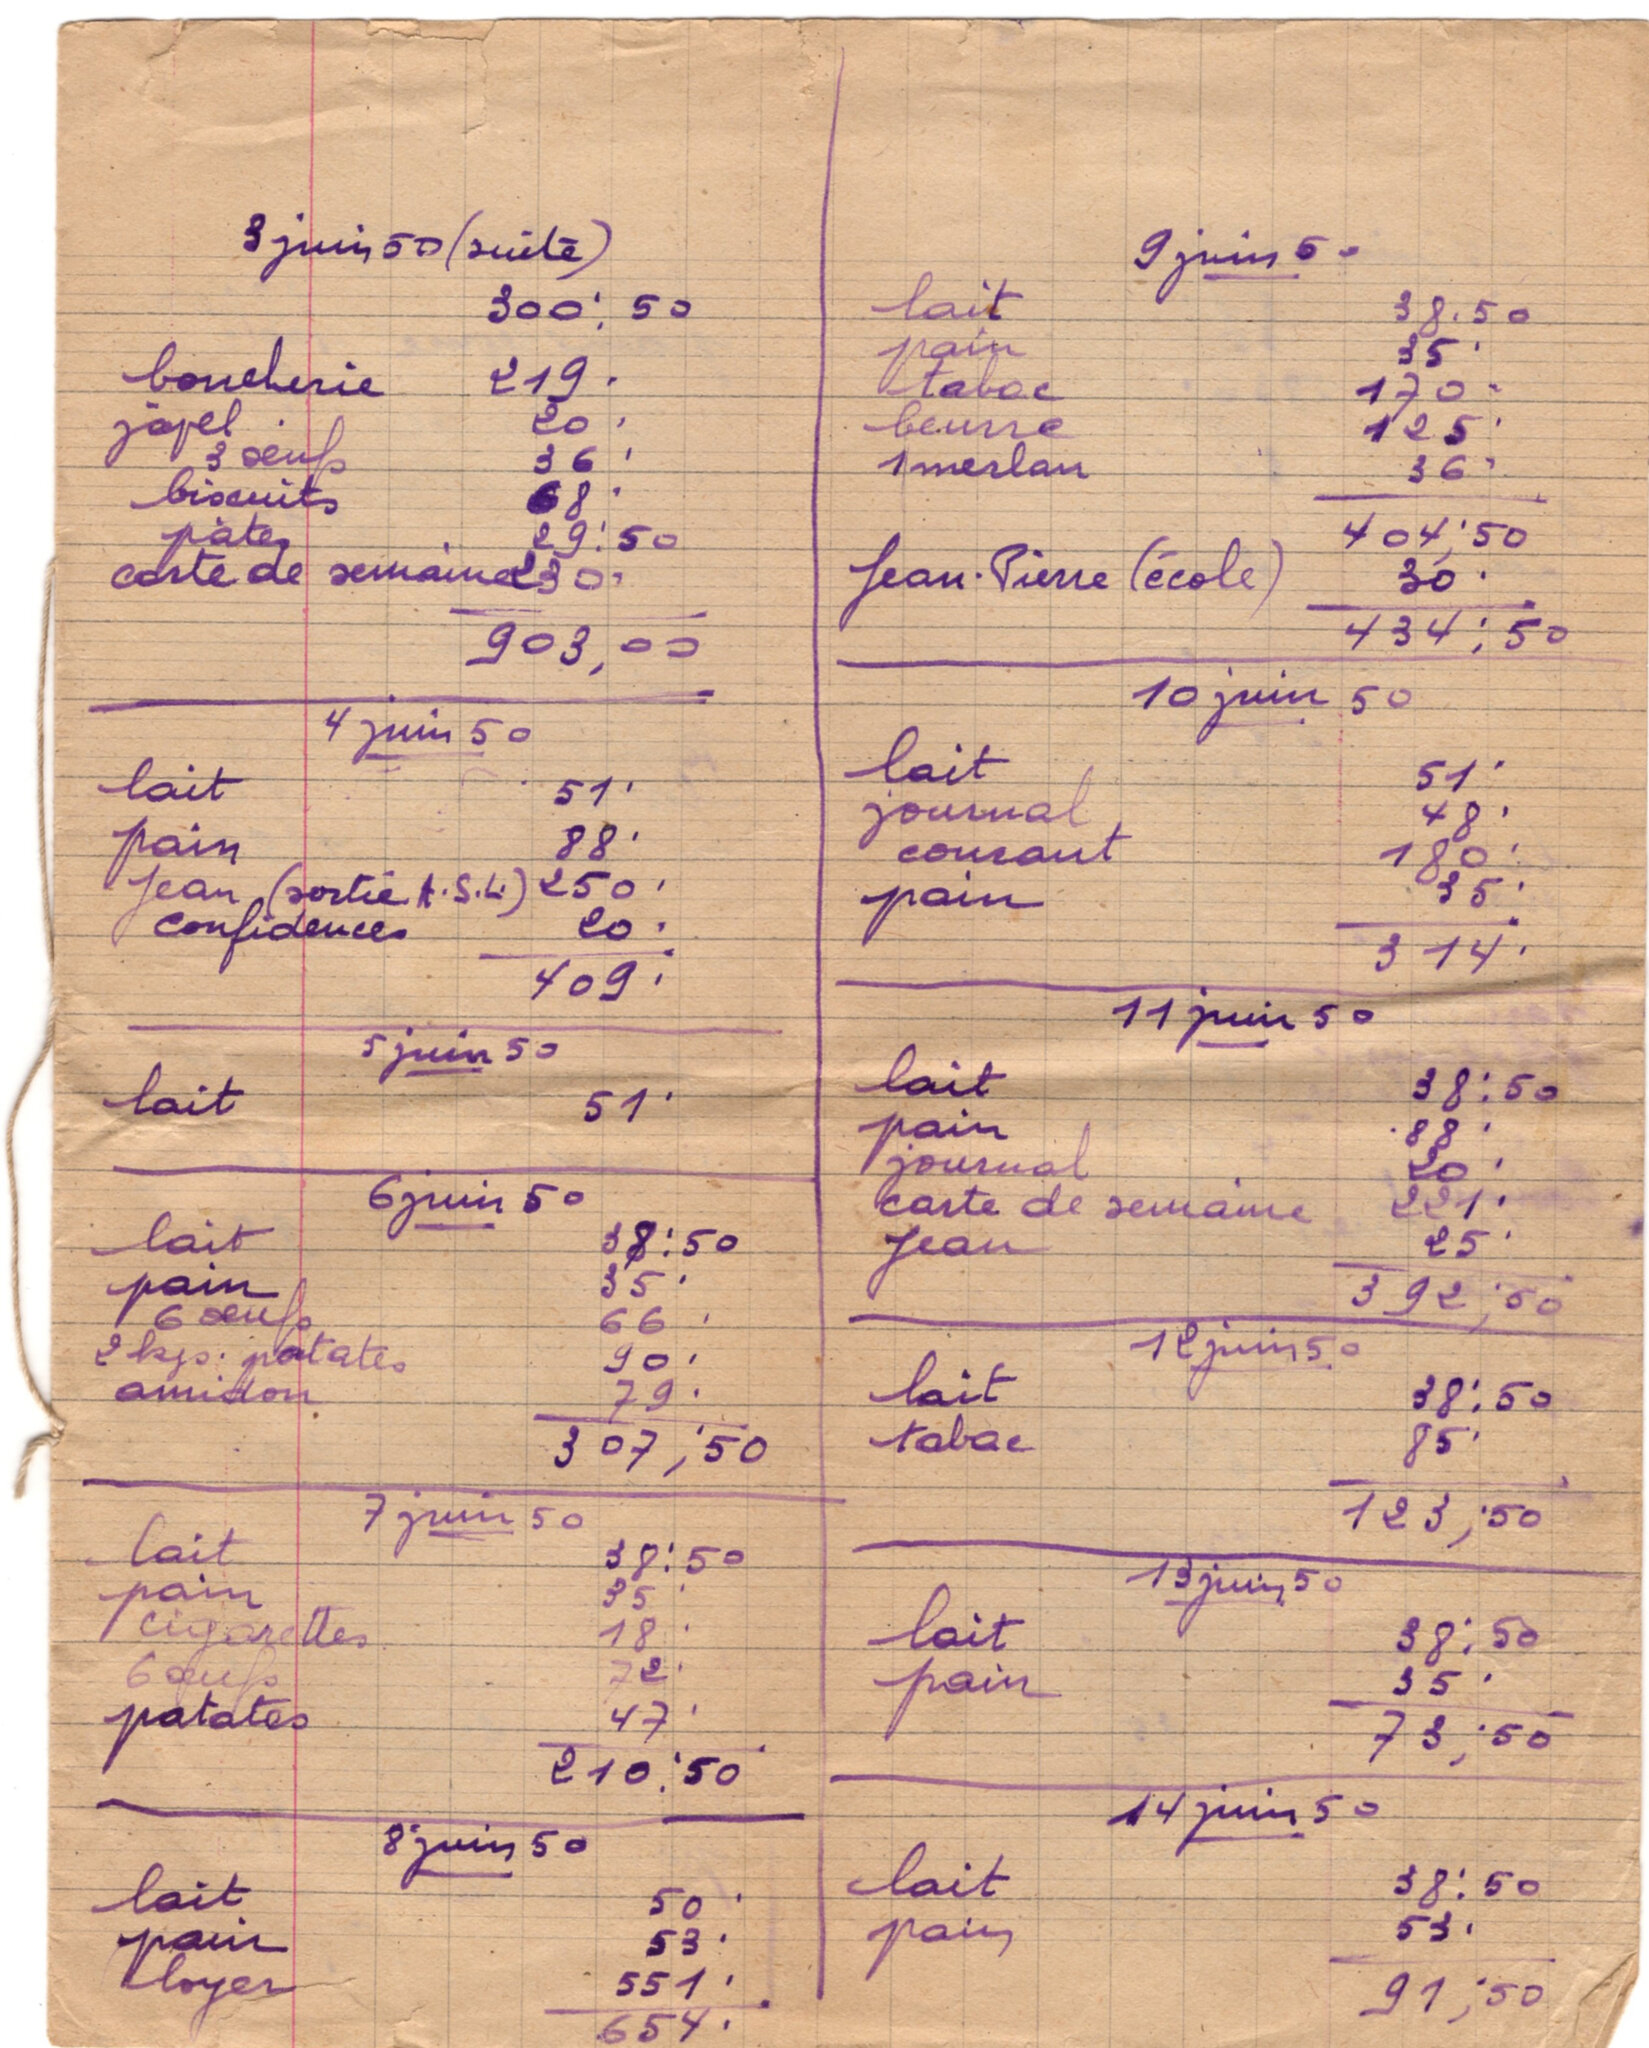 3 juin 50 (suite)
300,50
boucherie 219.
javel 20.
3 œufs 36.
biscuits 68.
pâtes 29,50
carte de semaine 230.
903,00
4 juin 50
lait 51.
pain 88.
Jean (sortie A.S.L.) 250.
Confidences 20.
409.
5 juin 50
lait 51.
6 juin 50
lait 38,50
pain 35.
6 œufs 66.
2 kgs. patates 90.
amidon 79.
307,50
7 juin 50
lait 38,50
pain 35.
cigarettes 18.
6 œufs 72.
patates 47.
210,50
8 juin 50
lait 50.
pain 53.
loyer 551.
654.
9 juin 50
lait 38.50
pain 35.
tabac 170.
beurre 125.
1 merlan 36.
404,50
Jean-Pierre (école) 30.
434,50
10 juin 50
lait 51.
journal 48.
courant 180.
pain 35.
314.
11 juin 50
lait 38,50
pain 88.
journal 20.
carte de semaine 221.
Jean 25.
392,50
12 juin 50
lait 38,50
tabac 85.
123,50
13 juin 50
lait 38,50
pain 35.
73,50
14 juin 50
lait 38,50
pain 53.
91,50